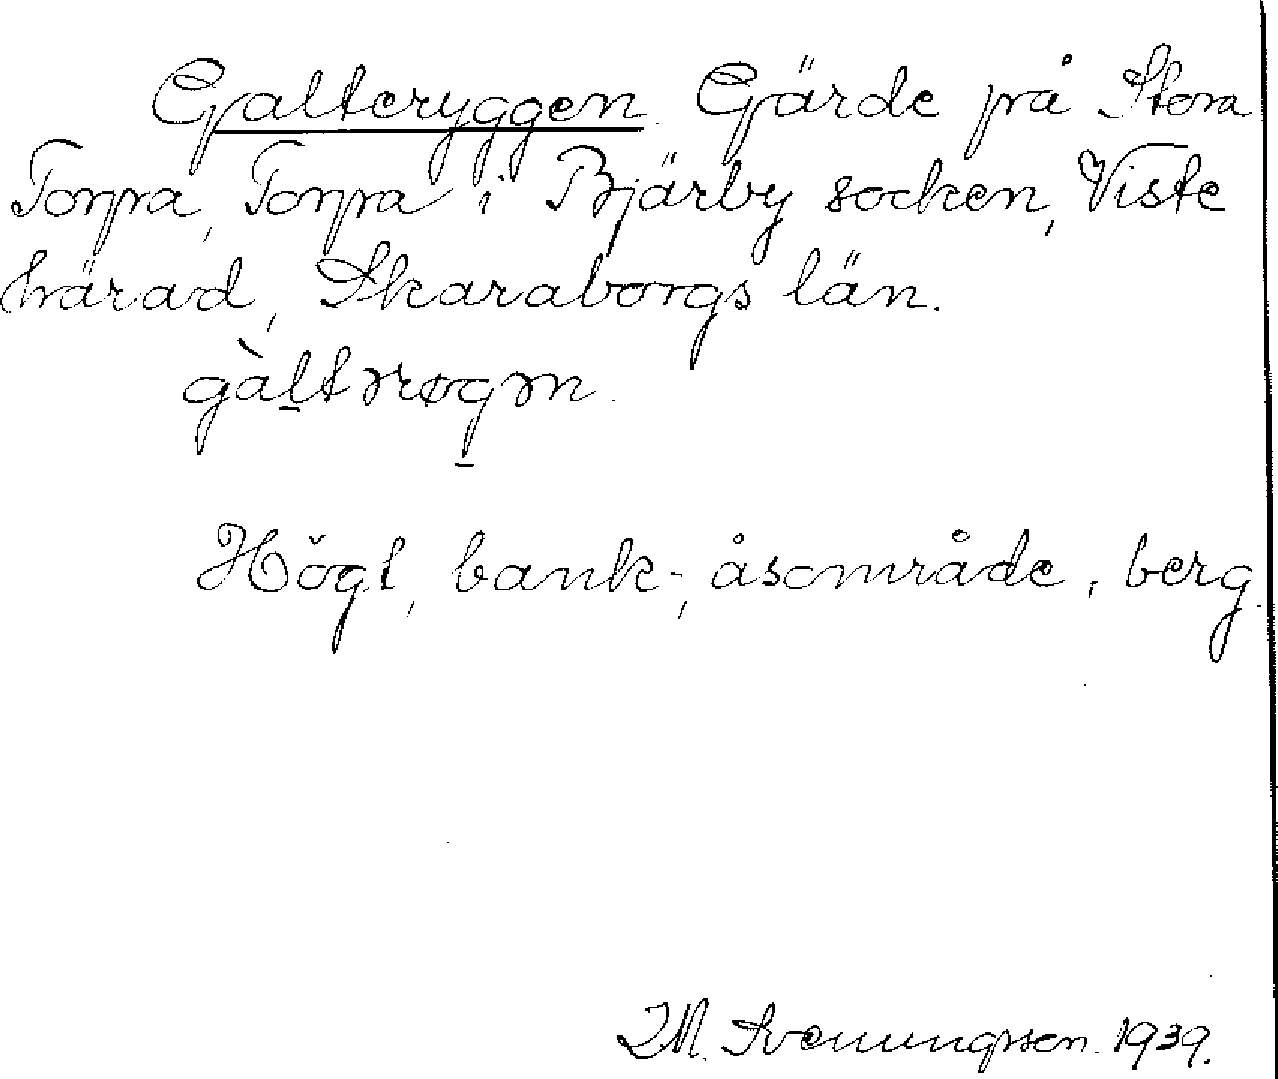 Galteryggen. Gärde på Stora
Torpa, Torpa i Bjärby socken, Viste
härad, Skaraborgs län.
gàl̠tərøg̠ən.
Högt, bank-, åsområde, berg.
I.M. Svenungsson. 1939.